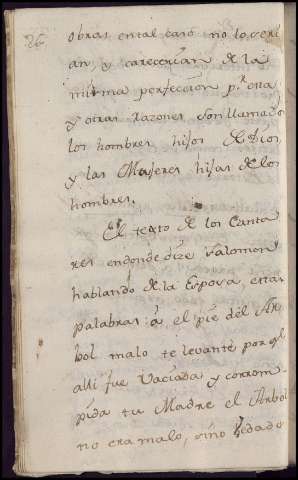 26
obras en tal caso no lo seri
an, y carecerian de la
misma perfeccion p.r esta
y otras razones son llamados
los hombres hijos de Dios
y las Mujeres hijas de los
hombres.
El texto de los Canta
res en donde dize Salomon
hablando de la Esposa, estas
palabras: á el pie del Ar
bol malo te levanté por q.e
alli fue Vaciada y corrom-
pida tu Madre el Arbol
no era malo, sino vedado